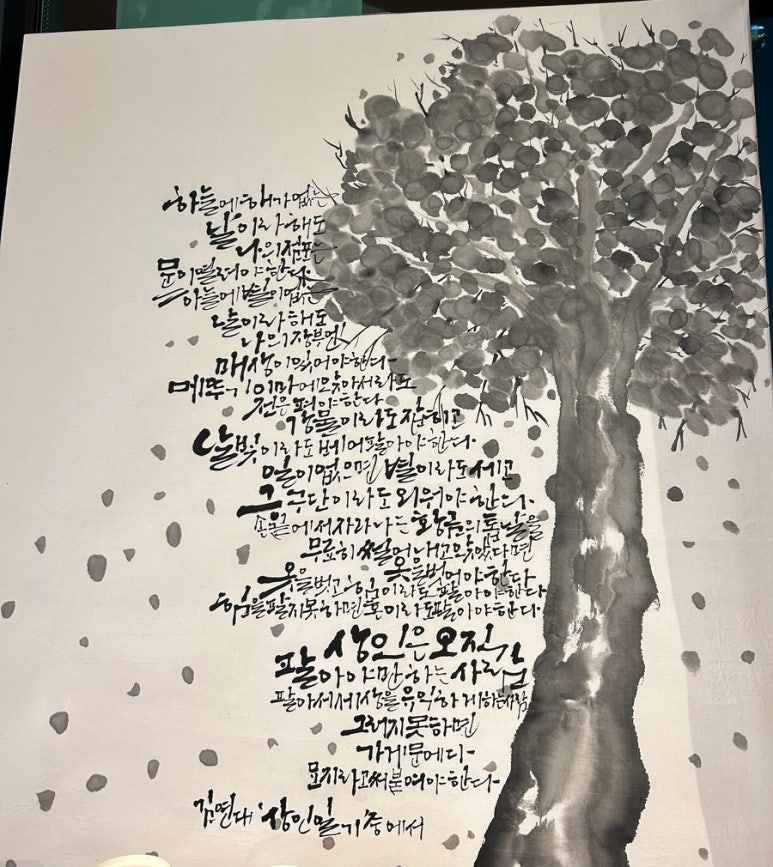 하늘에 해가 없는
날이라 해도
나의 점포는
문이 열려야 한다
하늘에 별이 없는
날이라 해도
나의 장부엔
매상이 있어야 한다
메뚜기 이마에 앉아서라도
전은 펴야 한다
강물이라도 잡히고
달빛이라도 베어 팔아야 한다.
일이 없으면 별이라도 세고
구구단이라도 외워야 한다.
손끝에서 자라나는 황금의 톱날을
무료히 썰어내고 앉았다면
옷을 벗어야 한다
옷을 벗고 힘이라도 팔아야 한다
힘을 팔지 못하면 혼이라도 팔아야 한다.
상인은 오직
팔아야만 하는 사람
팔아서 세상을 유익하게 하는 사람
그러지 못하면
가게문에다
묘지라고 써붙여야 한다
김연대 '상인일기 중에서